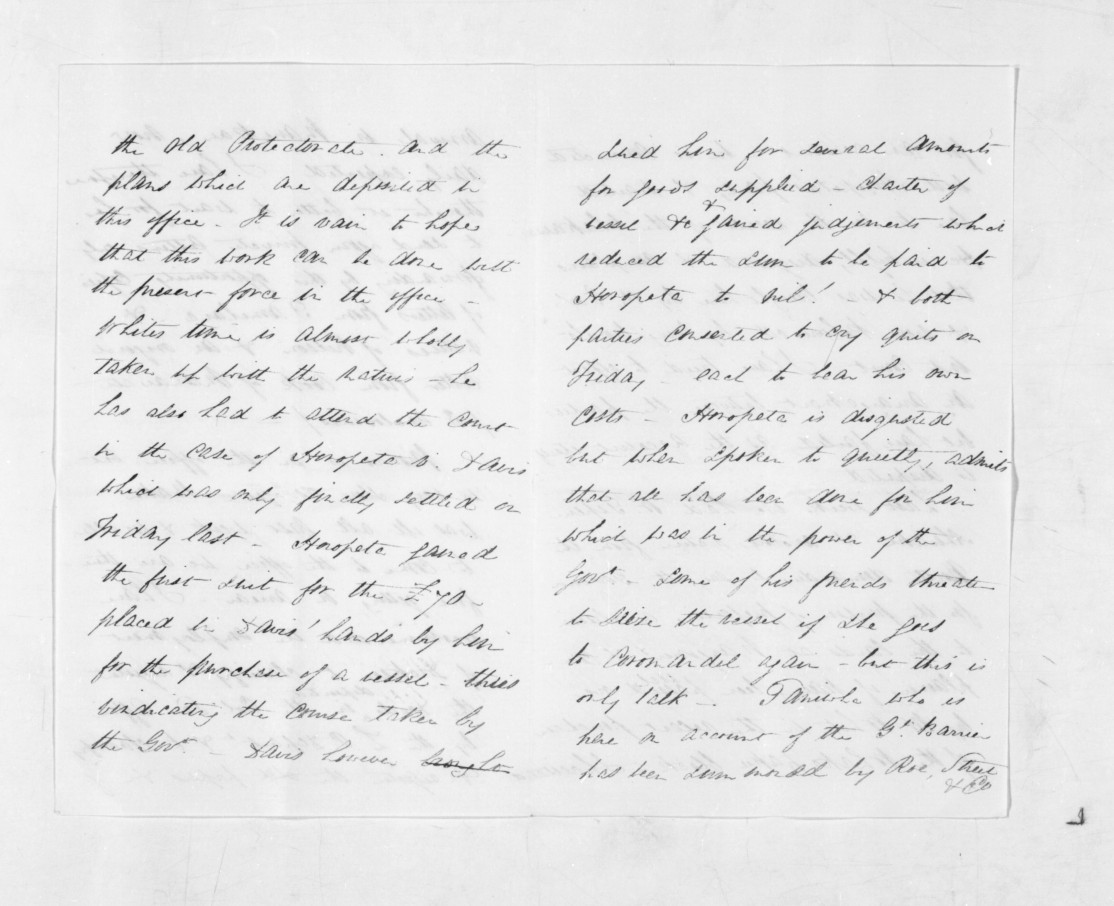 the Old Protectorate. And the
plans which are deposited in
this office. It is vain to hope
that this work can be done with
the present force in the office -
Whites time is almost wholly
taken up with the natives - he
has also had to attend the court
in the case of Horopeta v. Davis
which was only finally settled on
Friday last - Horopeta gained
the first suit for the £70
placed in Davis' hands by him
for the purchase of a vessel - thus
vindicating the course taken by
the Govt. - Davis however
sued him for several amounts
for goods supplied - Charter of
vessel &c & gained judgements which
reduced the sum to be paid to
Horopeta to nil! & both
parties consented to cry quits on
Friday - each to bear his own
costs - Horopeta is disgusted
but when spoken to quietly, admits
that all has been done for him
which was in the power of the
Govt. - Some of his friends threaten
to seize the vessel if she goes
to Coromandel again - but this is
only talk - Taniwha who is
here on account of the Gt. Barrier
has been summonsed by Roe, Street
& Co